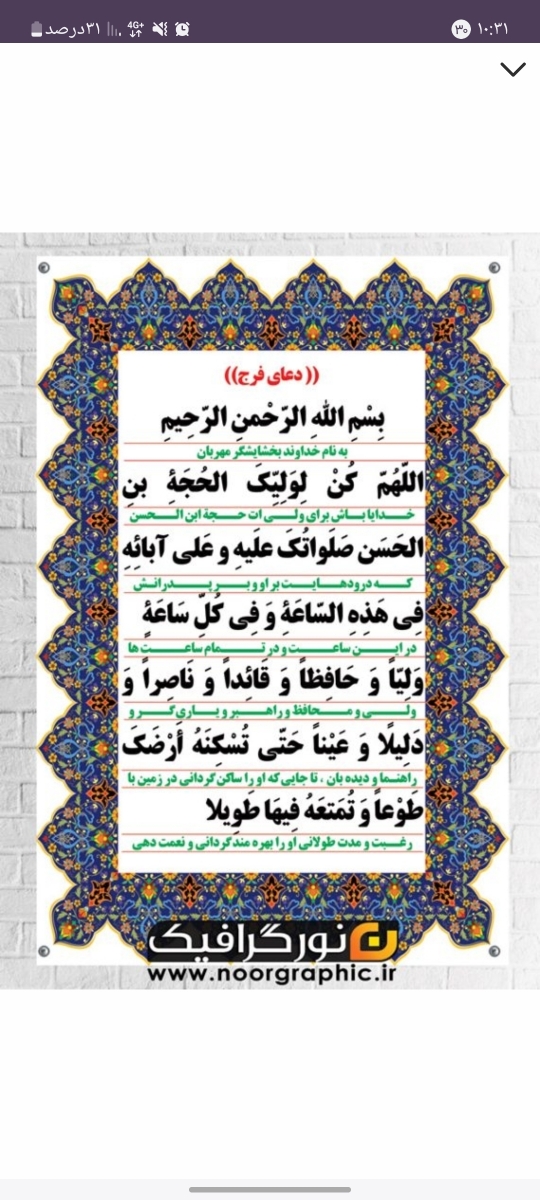 ۳۱درصد 4G+ ۳۰ ۱۰:۳۱
(( دعای فرج))
بِسْمِ اللهِ الرّحْمنِ الرّحیمِ
به نام خداوند بخشایشگر مهربان
اللّهُمّ کُنْ لِوَلِیّکَ الحُجَةِ بنِ
خدایا باش برای ولی ات حجة ابن الحسن
الحَسَن صَلَواتُکَ علَیهِ و عَلی آبائِهِ
که درودهایت بر او و بر پدرانش
فِی هَذِهِ السّاعَةِ وَ فِی کُلّ سَاعَةٍ
در این ساعت و در تمام ساعت ها
وَلِیّاً وَ حَافِظاً وَ قَائِداً وَ نَاصِراً وَ
ولی و محافظ و راهبر و یاری گر و
دَلِیلًا وَ عَیْناً حَتّی تُسْکِنَهُ أَرْضَکَ
راهنما و دیده بان ، تا جایی که او را ساکن گردانی در زمین با
طَوْعاً وَ تُمَتعَهُ فِیهَا طَوِیلا
رغبت و مدت طولانی او را بهره مند گردانی و نعمت دهی
نورگرافیک
www.noorgraphic.ir